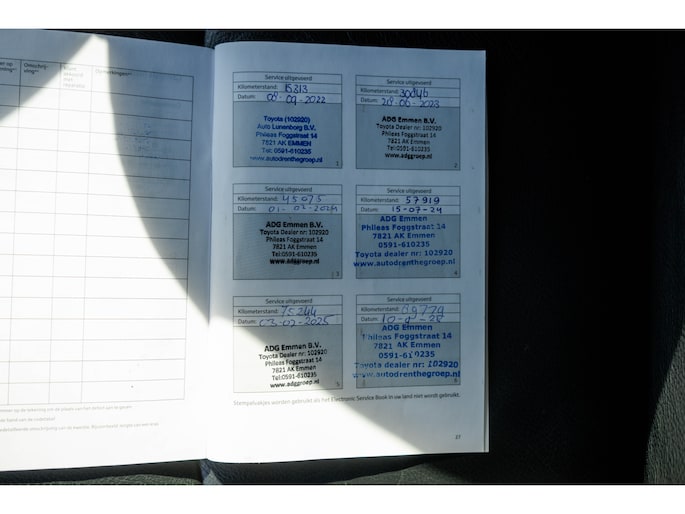 Opmerkingen
Service uitgevoerd
Kilometerstand: 15813
Datum: -09-2022
Toyota (102920)
Auto Lunenborg B.V.
Phileas Foggstraat 14
7821 AK EMMEN
Tel: 0591-610235
www.autodrenthegroep.nl
1
Service uitgevoerd
Kilometerstand:
Datum: -06-2023
ADG Emmen B.V.
Toyota Dealer nr: 102920
Phileas Foggstraat 14
7821 AK Emmen
Tel:0591-610235
www.adggroep.nl
2
Service uitgevoerd
Kilometerstand: 45075
Datum: 01-02-2024
ADG Emmen B.V.
Toyota Dealer nr: 102920
Phileas Foggstraat 14
7821 AK Emmen
Tel:0591-610235
www.adggroep.nl
3
Service uitgevoerd
Kilometerstand: 57919
Datum: 15-07-24
ADG Emmen
Phileas Foggstraat 14
7821 AK Emmen
0591-610235
Toyota dealer nr: 102920
www.autodrenthegroep.nl
4
Service uitgevoerd
Kilometerstand: 75244
Datum: 03-02-2025
ADG Emmen B.V.
Toyota Dealer nr: 102920
Phileas Foggstraat 14
7821 AK Emmen
Tel:0591-610235
www.adggroep.nl
5
Service uitgevoerd
Kilometerstand:
Datum:
ADG Emmen
Phileas Foggstraat 14
7821 AK Emmen
0591-610235
Toyota dealer nr: 102920
www.autodrenthegroep.nl
6
Stempelvakjes worden gebruikt als het Electronic Service Book in uw land niet wordt gebruikt.
27